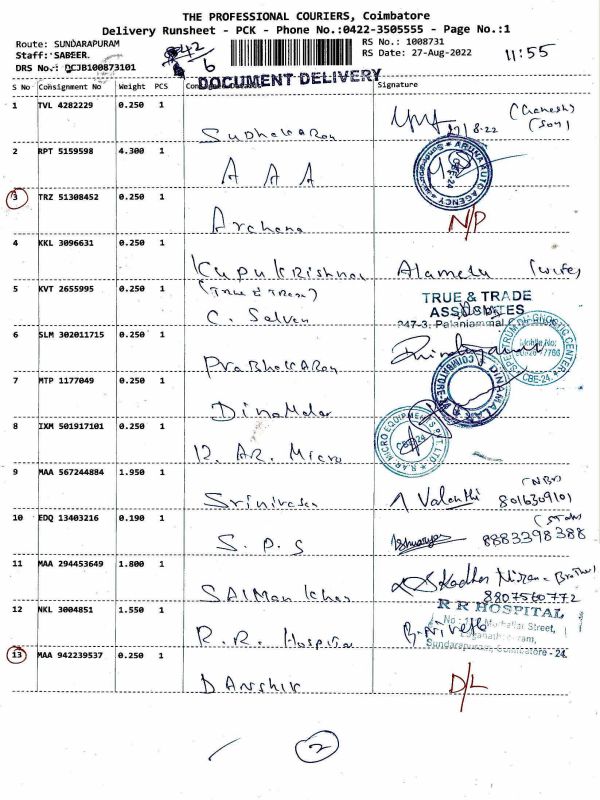 THE PROFESSIONAL COURIERS, Coimbatore
Delivery Runsheet - PCK - Phone No.:0422-3505555 - Page No.:1
Route: SUNDARAPURAM
RS No.: 1008731
Staff: SABEER.
RS Date: 27-Aug-2022
11:55
DRS No.: DCJB100873101
42
6
DOCUMENT DELIVERY
S No Consignment No Weight PCS Signature
1 TVL 4282229 0.250 1
Sudhakaran
27/8.22
(Ganesh)
(Son)
2 RPT 5159598 4.300 1
A A A
ARUNA AUTO AGENCY
CBE-24
3 TRZ 51308452 0.250 1
Archana
N/P
4 KKL 3096631 0.250 1
Kupukrishnan Alamelu (wife)
5 KVT 2655995 0.250 1
(True & Trade)
C. Selvan
TRUE & TRADE
ASSOCIATES
247-3, Palaniammal
6 SLM 302011715 0.250 1
Prabhakaran
SPECTRUM DIAGNOSTIC CENTER
Mobile No:
CBE-24.
7 MTP 1177049 0.250 1
Dinamalar
DINAMALAR
COIMBATORE
8 IXM 501917101 0.250 1
12. AR. Micro
MICRO EQUIPMENTS PVT. LTD
CBE-24
9 MAA 567244884 1.950 1
Srinivasan
Valanthi 8016309101
(NBR)
10 EDQ 13403216 0.190 1
S. P. S
Ishwarya 8883398388
11 MAA 294453649 1.800 1
Salman Khan
Brother
8807560772
12 NKL 3004851 1.550 1
R. R. Hospital
R R HOSPITAL
Street,
Sundarapuram, Coimbatore - 24.
13 MAA 942239537 0.250 1
D Anshir
D/L
2